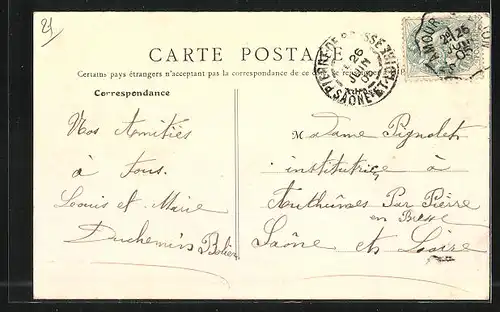 21
CARTE POSTALE
Certains pays étrangers n'acceptant pas la correspondance de ce
Correspondance
PIERRE-DE-BRESSE
26
JUIN
SAONE-ET-LOIRE
26
JUIN
Nos Amitiés
à tous.
Louis et Marie
Duchemin
Madame Pignolet
institutrice à
Authumes Par Pierre
en Bresse
Saône et Loire